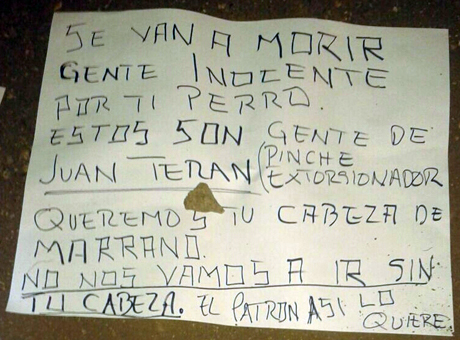 SE VAN A MORIR
GENTE INOCENTE
POR TI PERRO.
ESTOS SON GENTE DE
JUAN TERAN (PINCHE
EXTORSIONADOR
QUEREMOS TU CABEZA DE
MARRANO.
NO NOS VAMOS A IR SIN
TU CABEZA. EL PATRON ASI LO
QUIERE.